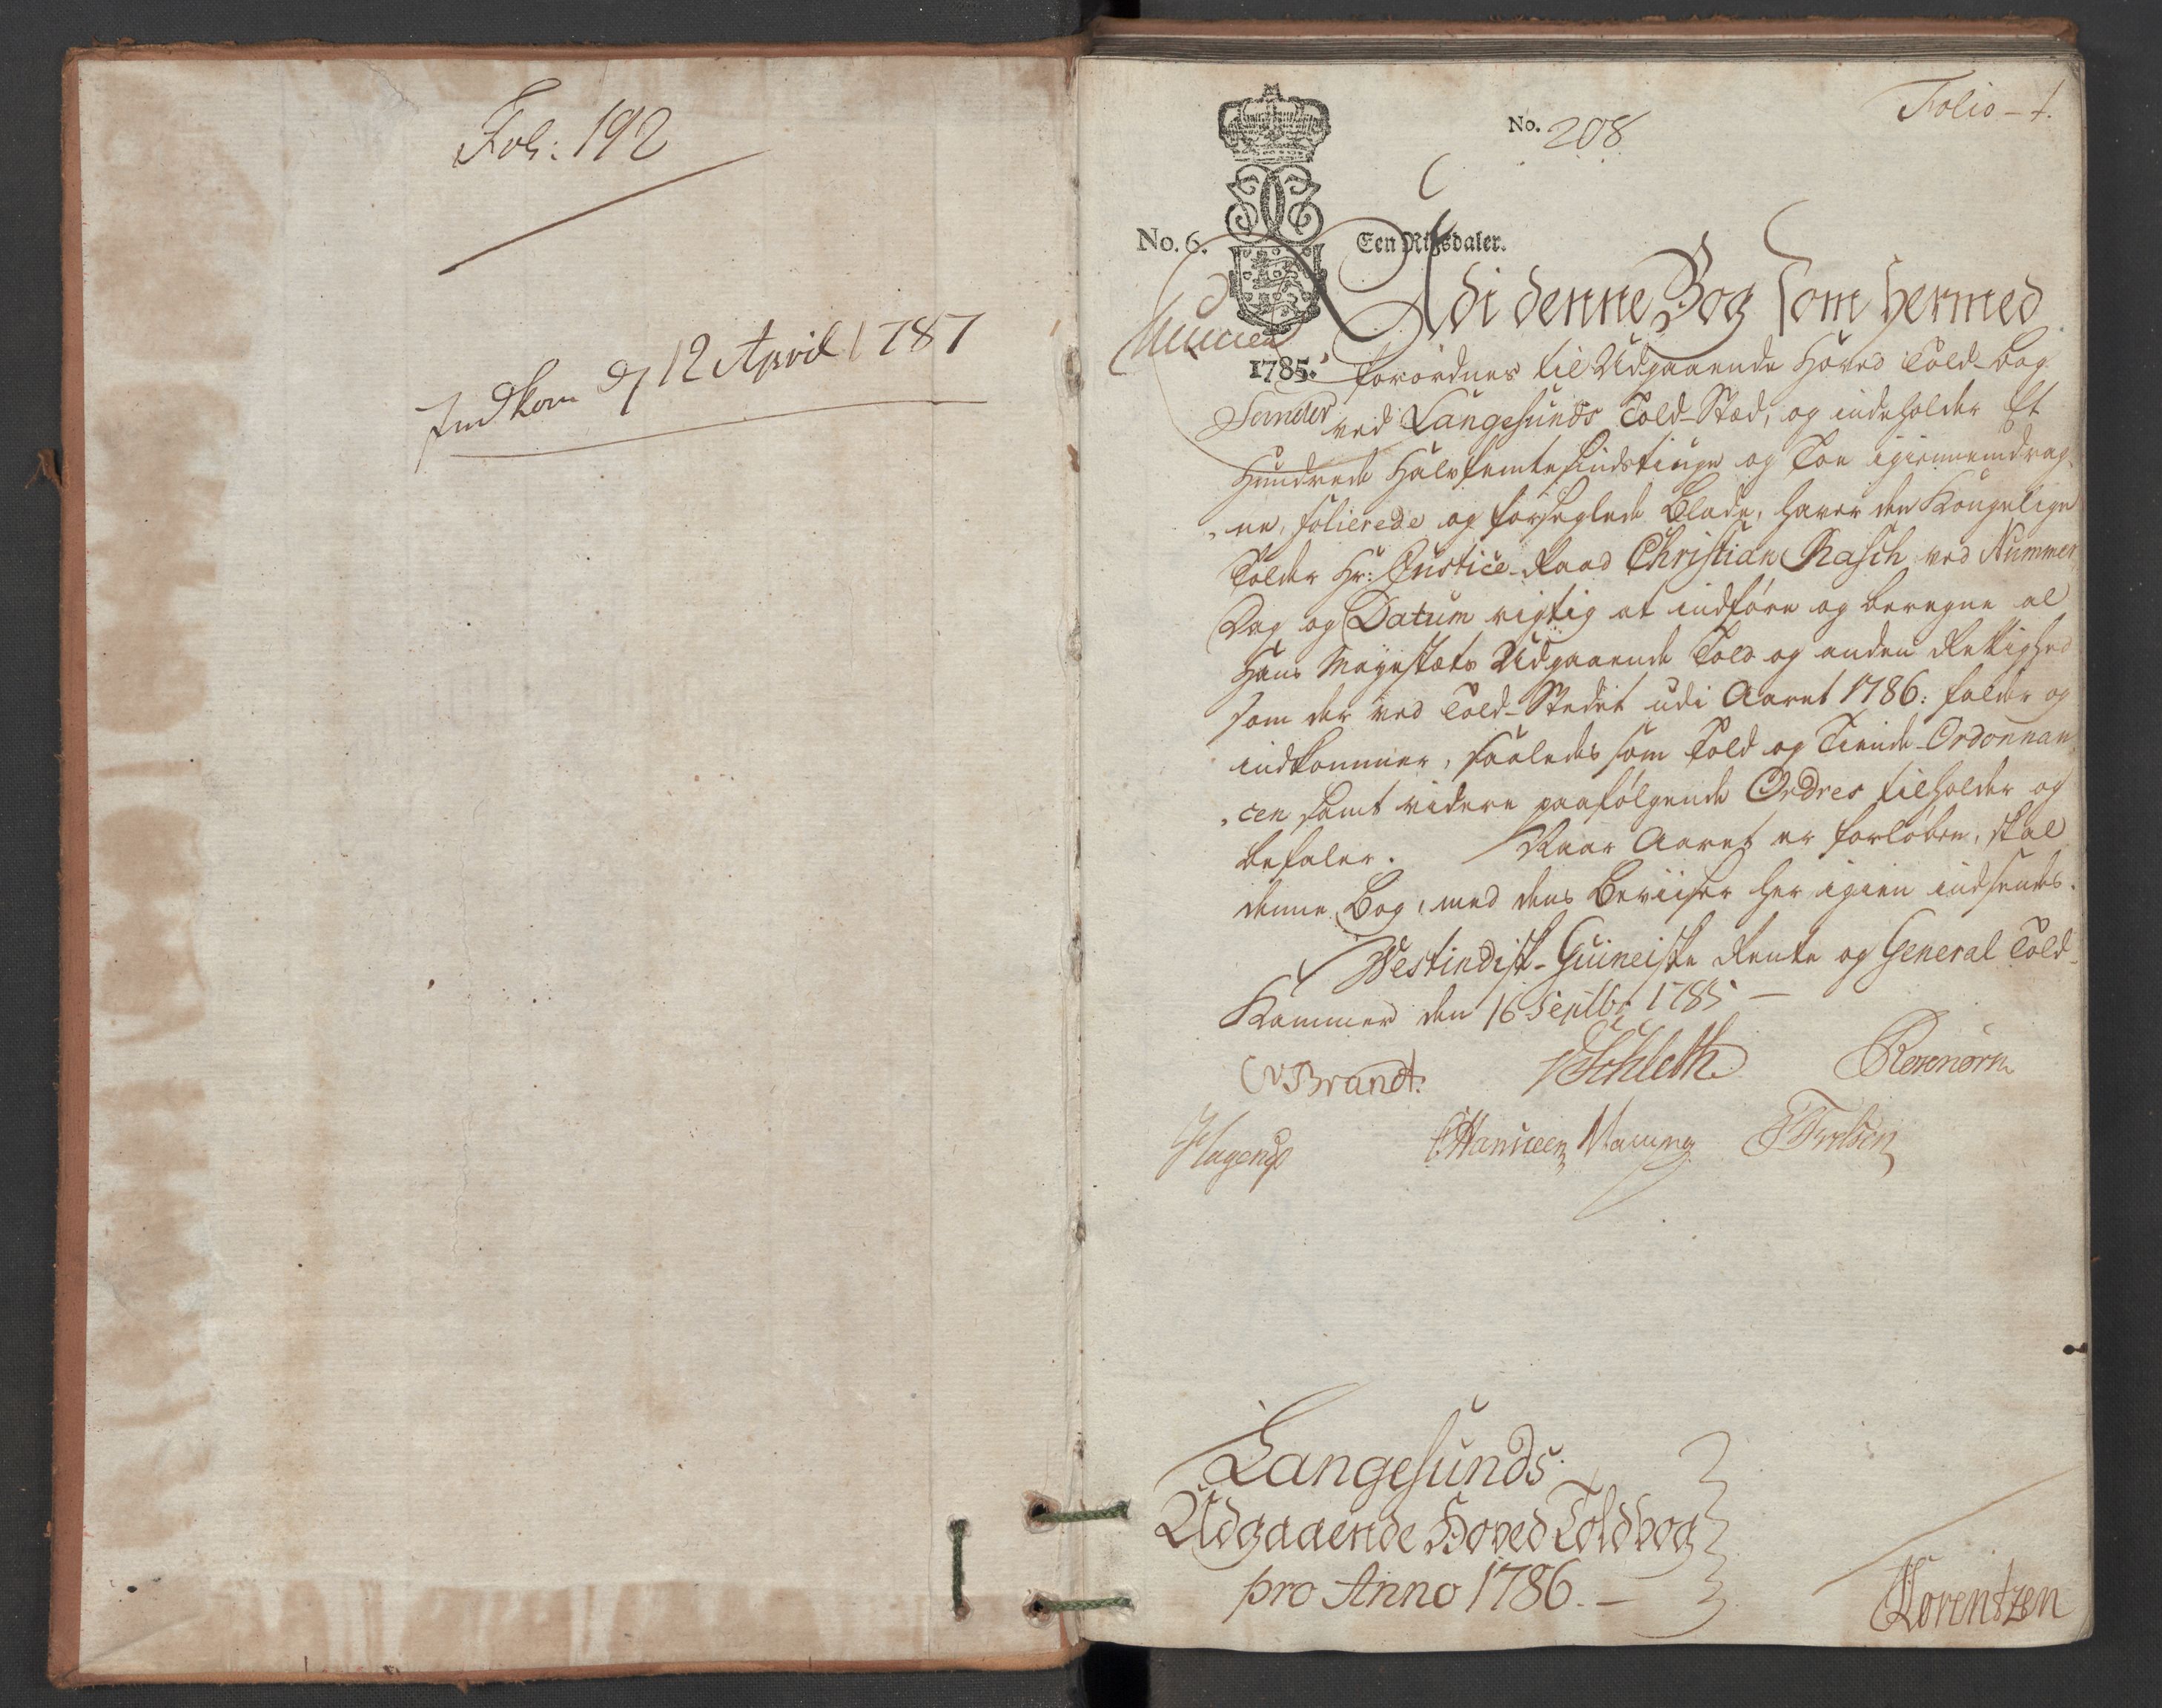 Fol: 192
Indkom d 12 April 1787
Folio - 1.
No. 208
No. 6.
Een Rigsdaler.
Udi denne Bog som hermed
1785.
forordnes til Udgaaende Hoved Told-Bog
ved Langesunds Told-Stæd, og indeholder Et
Hundrede Halvfemtesindstiuge og Toe igiennemdrag-
ne, folierede og forseglede Blade, haver den Kongelige
Tolder Hr: Justice-Raad Christian Rasch ved Nummer
Dag og Datum rigtig at indføre og beregne al
Hans Mayestæts Udgaaende Told og anden Rettighed
som der ved Told-Stedet udi Aaret 1786: falder og
indkommer, saaledes som Told og Tiende-Ordonnan-
cen samt videre paafølgende Ordres tilholder og
befaler. Naar Aaret er forløben, skal
denne Bog, med dens Beviiser her igien indsendes.
Westindisk-Guineiske Rente og General Told-
Kammer den 16 Septbr 1785 —
Brandt. Schleth
Hagerup
Langesunds
Udgaaende Hoved Toldbog
pro Anno 1786. —
Lorentzen